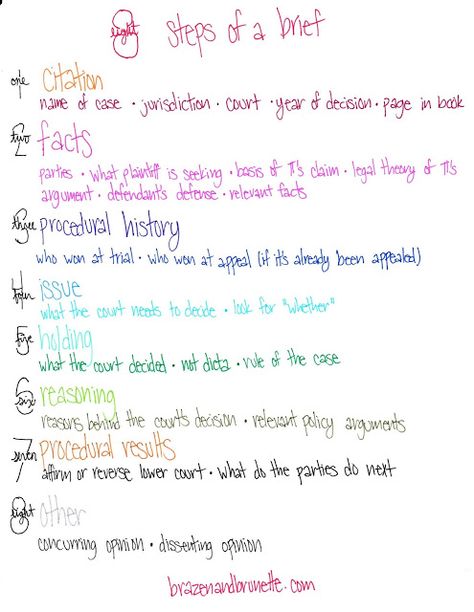 8 eight steps of a brief
1 one citation
name of case • jurisdiction • court • year of decision • page in book
2 two facts
parties • what plaintiff is seeking • basis of π's claim • legal theory of π's
argument • defendant's defense • relevant facts
3 three procedural history
who won at trial • who won at appeal (if it's already been appealed)
4 four issue
what the court needs to decide • look for "whether"
5 five holding
what the court decided • not dicta • rule of the case
6 six reasoning
reasons behind the court's decision • relevant policy arguments
7 seven procedural results
affirm or reverse lower court • what do the parties do next
8 eight other
concurring opinion • dissenting opinion
brazenandbrunette.com